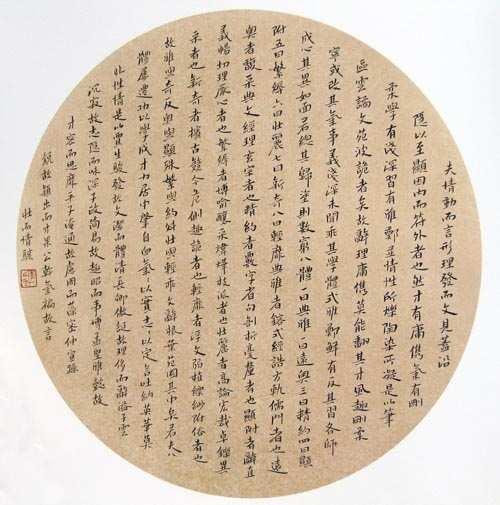 夫情動而言形理發而文見蓋沿
隱以至顯因內而符外者也然才有庸儁氣有剛
柔學有淺深習有雅鄭並情性所爍陶染所凝是以筆
區雲譎文苑波詭者矣故辭理庸儁莫能翻其才風趣剛柔
寧或改其氣事義淺深未聞乖其學體式雅鄭鮮有反其習各師
成心其異如面若總其歸塗則數窮八體一曰典雅二曰遠奧三曰精約四曰顯
附五曰繁縟六曰壯麗七曰新奇八曰輕靡典雅者鎔式經誥方軌儒門者也遠
奧者馥采典文經理玄宗者也精約者覈字省句剖析毫釐者也顯附者辭直
義暢切理厭心者也繁縟者博喻釀采煒燁枝派者也壯麗者高論宏裁卓爍異
采者也新奇者擯古競今危側趣詭者也輕靡者浮文弱植縹緲附俗者也
故雅與奇反奧與顯殊繁與約舛壯與輕乖文辭根葉苑囿其中矣若夫八
體屢遷功以學成才力居中肇自血氣氣以實志志以定言吐納英華莫
非情性是以賈生駿發故文潔而體清長卿傲誕故理侈而辭溢子雲
沉寂故志隱而味深子政簡易故趣昭而事博孟堅雅懿故
才密而思靡平子淹通故慮周而藻密仲宣躁
銳故穎出而才果公幹氣褊故言
壯而情駭